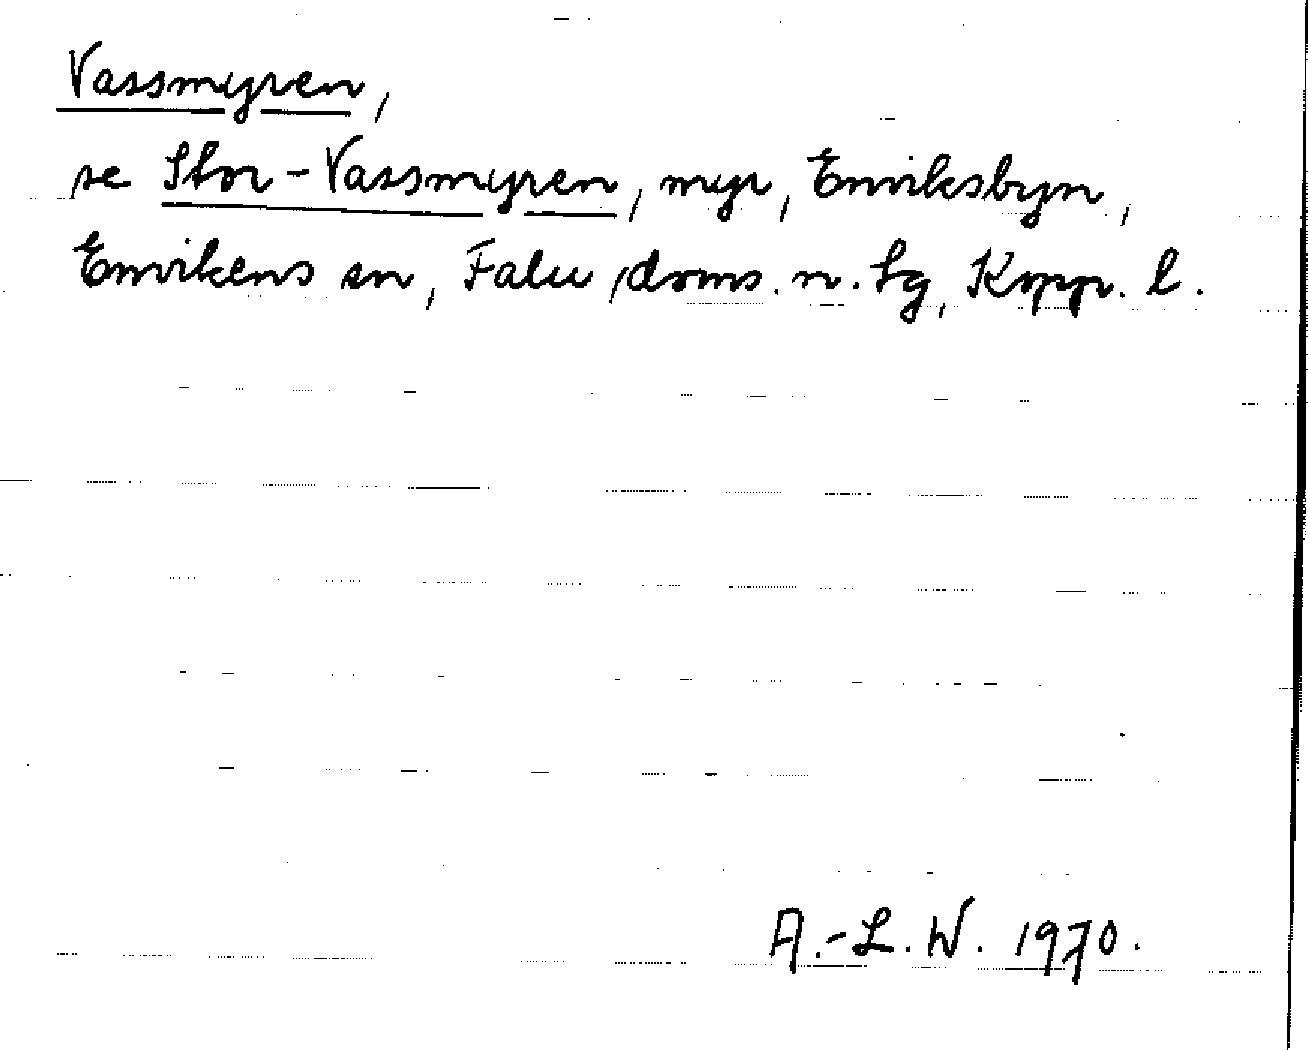 Vassmyren,
se Stor-Vassmyren, myr, Enviksbyn,
Envikens sn, Falu doms. n. tg, Kopp. l.
A.-L. W. 1970.